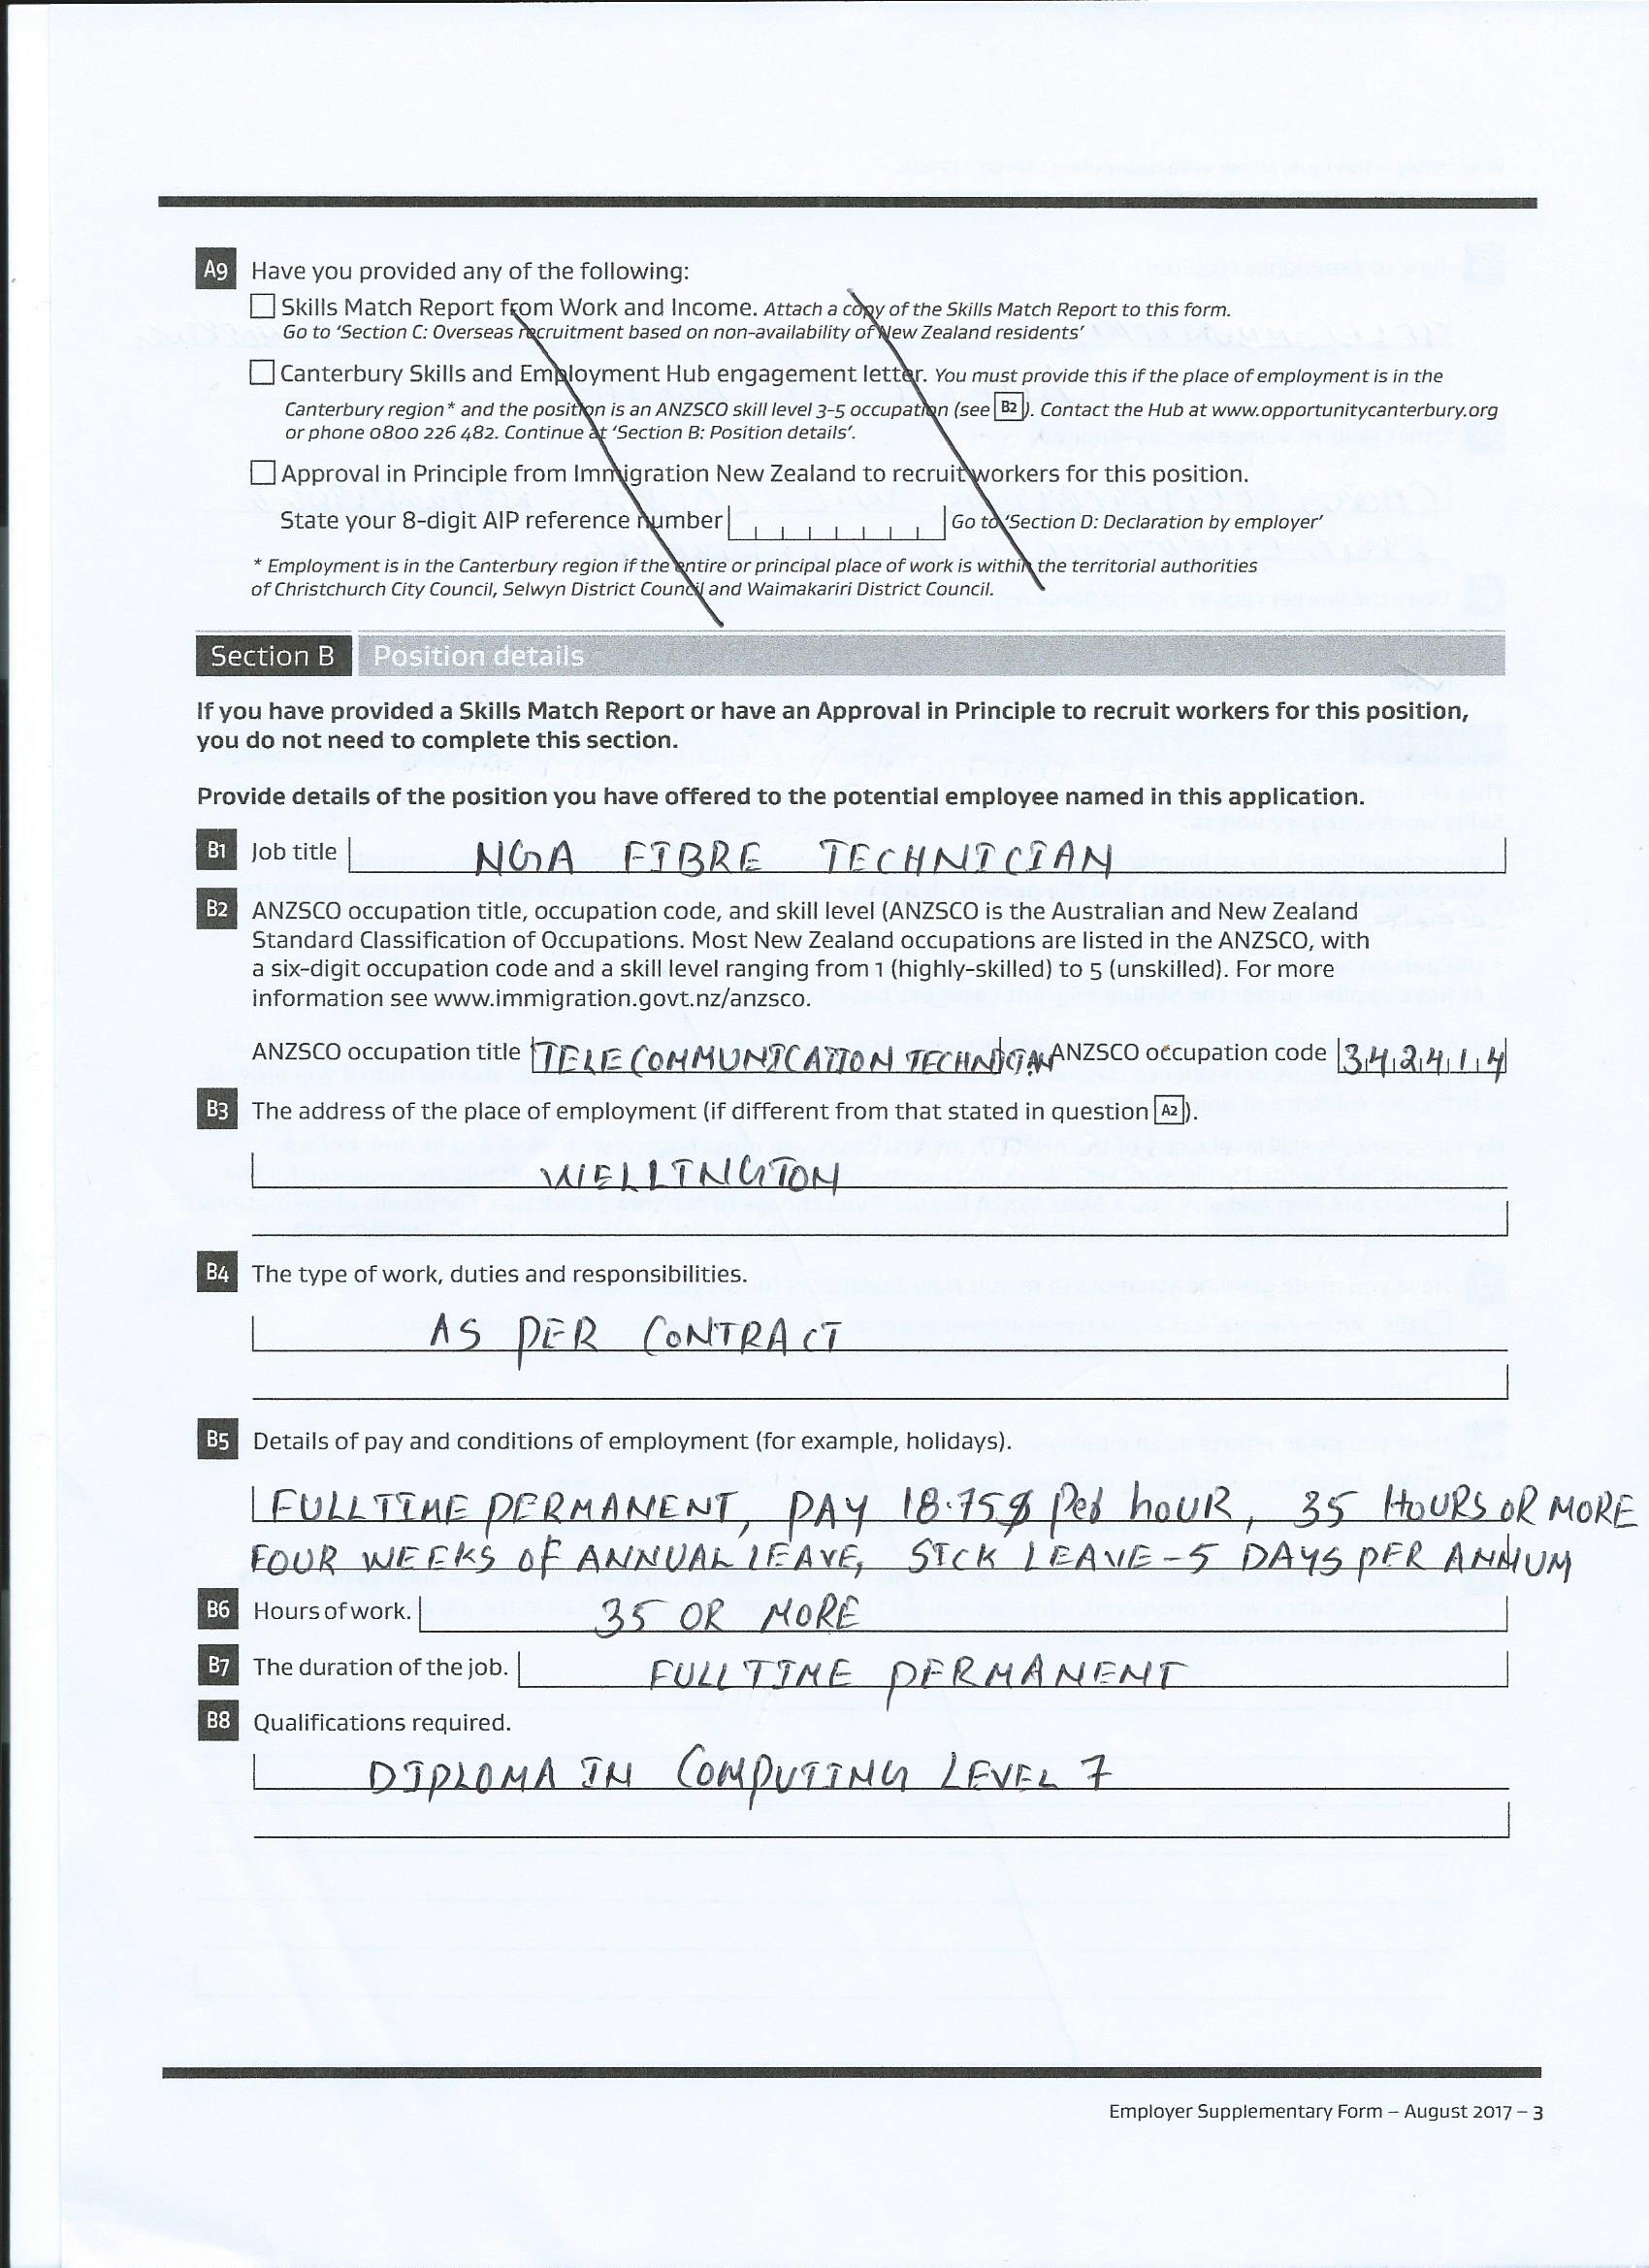 A9 Have you provided any of the following:
Skills Match Report from Work and Income. Attach a copy of the Skills Match Report to this form.
Go to ‘Section C: Overseas recruitment based on non-availability of New Zealand residents’
Canterbury Skills and Employment Hub engagement letter. You must provide this if the place of employment is in the
Canterbury region* and the position is an ANZSCO skill level 3-5 occupation (see B2). Contact the Hub at www.opportunitycanterbury.org
or phone 0800 226 482. Continue at ‘Section B: Position details’.
Approval in Principle from Immigration New Zealand to recruit workers for this position.
State your 8-digit AIP reference number Go to ‘Section D: Declaration by employer’
* Employment is in the Canterbury region if the entire or principal place of work is within the territorial authorities
of Christchurch City Council, Selwyn District Council and Waimakariri District Council.
Section B Position details
If you have provided a Skills Match Report or have an Approval in Principle to recruit workers for this position,
you do not need to complete this section.
Provide details of the position you have offered to the potential employee named in this application.
B1 Job title NGA FIBRE TECHNICIAN
B2 ANZSCO occupation title, occupation code, and skill level (ANZSCO is the Australian and New Zealand
Standard Classification of Occupations. Most New Zealand occupations are listed in the ANZSCO, with
a six-digit occupation code and a skill level ranging from 1 (highly-skilled) to 5 (unskilled). For more
information see www.immigration.govt.nz/anzsco.
ANZSCO occupation title TELECOMMUNICATION TECHNICIAN ANZSCO occupation code 342414
B3 The address of the place of employment (if different from that stated in question A2).
WELLINGTON
B4 The type of work, duties and responsibilities.
AS PER CONTRACT
B5 Details of pay and conditions of employment (for example, holidays).
FULL TIME PERMANENT, PAY 18.75$ Per hOUR, 35 HOURS OR MORE
FOUR WEEKS OF ANNUAL LEAVE, SICK LEAVE - 5 DAYS PER ANNUM
B6 Hours of work. 35 OR MORE
B7 The duration of the job. FULL TIME PERMANENT
B8 Qualifications required.
DIPLOMA IN COMPUTING LEVEL 7
Employer Supplementary Form – August 2017 – 3